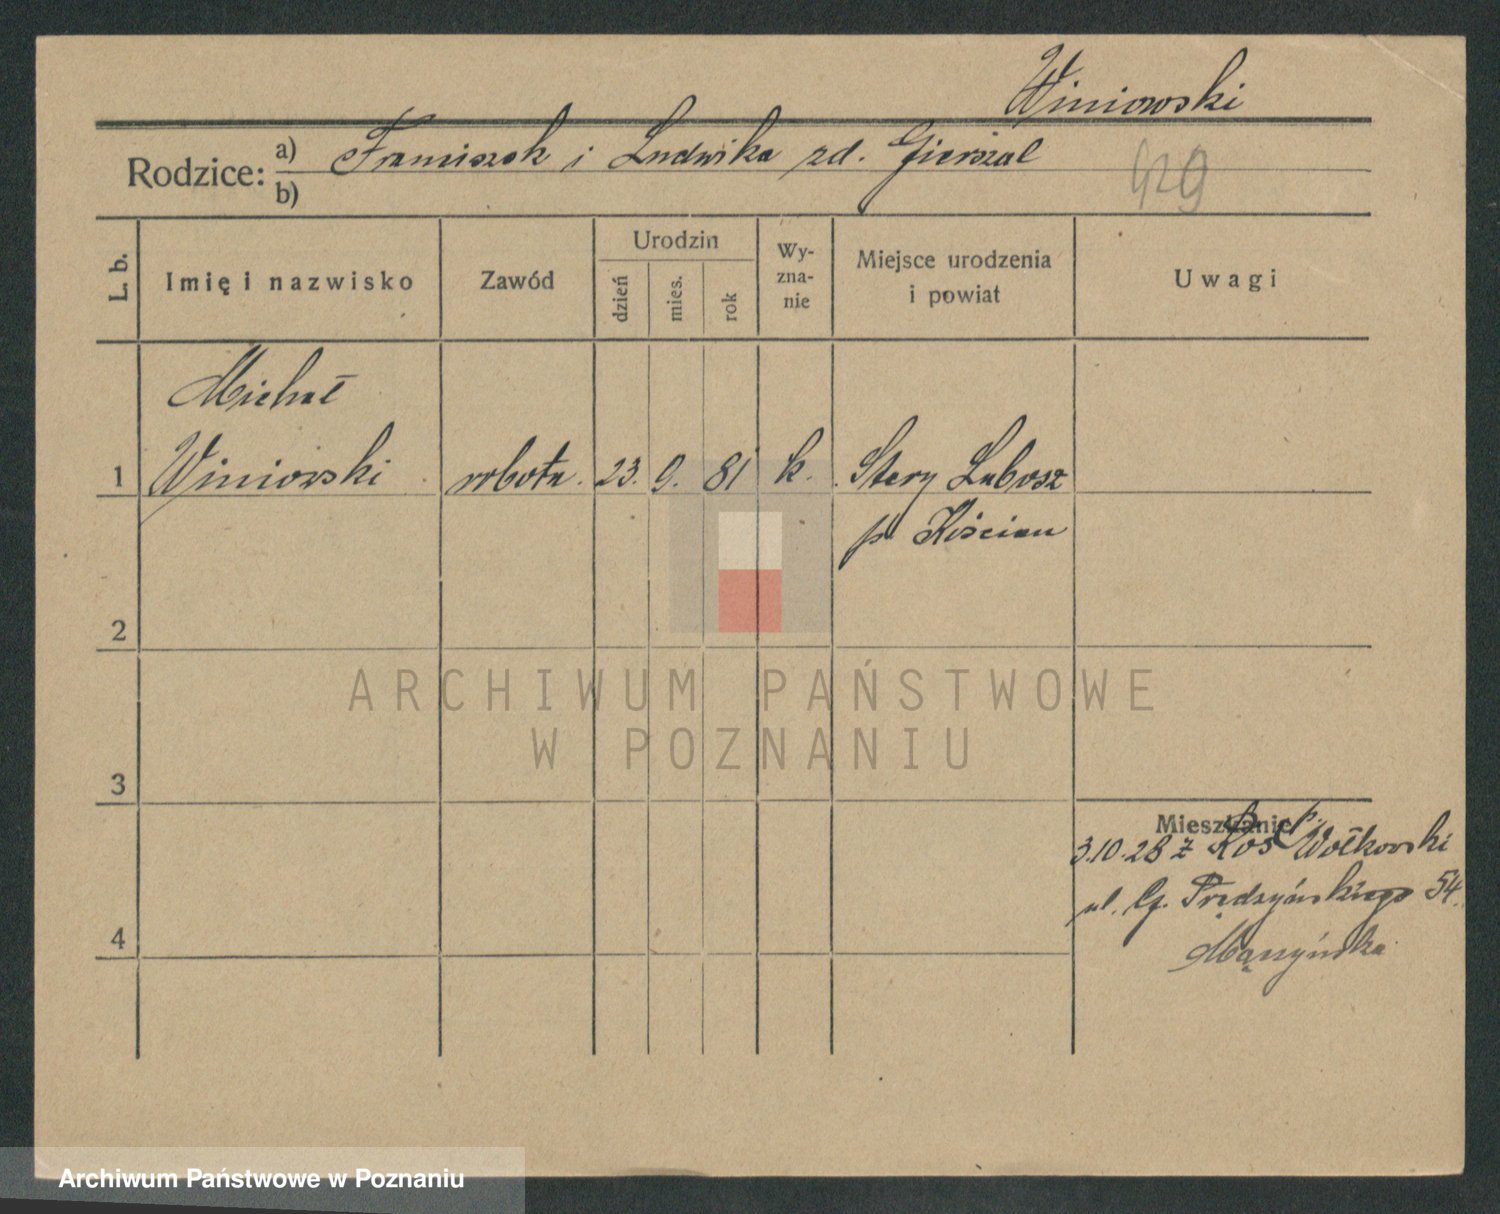 Winiowski
Rodzice: a) Franciszek i Ludwika zd. Gierszal
b)
429
L. b.
Imię i nazwisko
Zawód
Urodzin
dzień
mies.
rok
Wy-
zna-
nie
Miejsce urodzenia
i powiat
Uwagi
Michał
1 Winiowski robotn. 23. 9. 81 k. Stary Lubosz
p. Kościan
2
3
Mieszkanie
3.10.28 z Wółkowski
4 ul. G. Prądzyńskiego 54.
ARCHIWUM PAŃSTWOWE
W POZNANIU
Archiwum Państwowe w Poznaniu